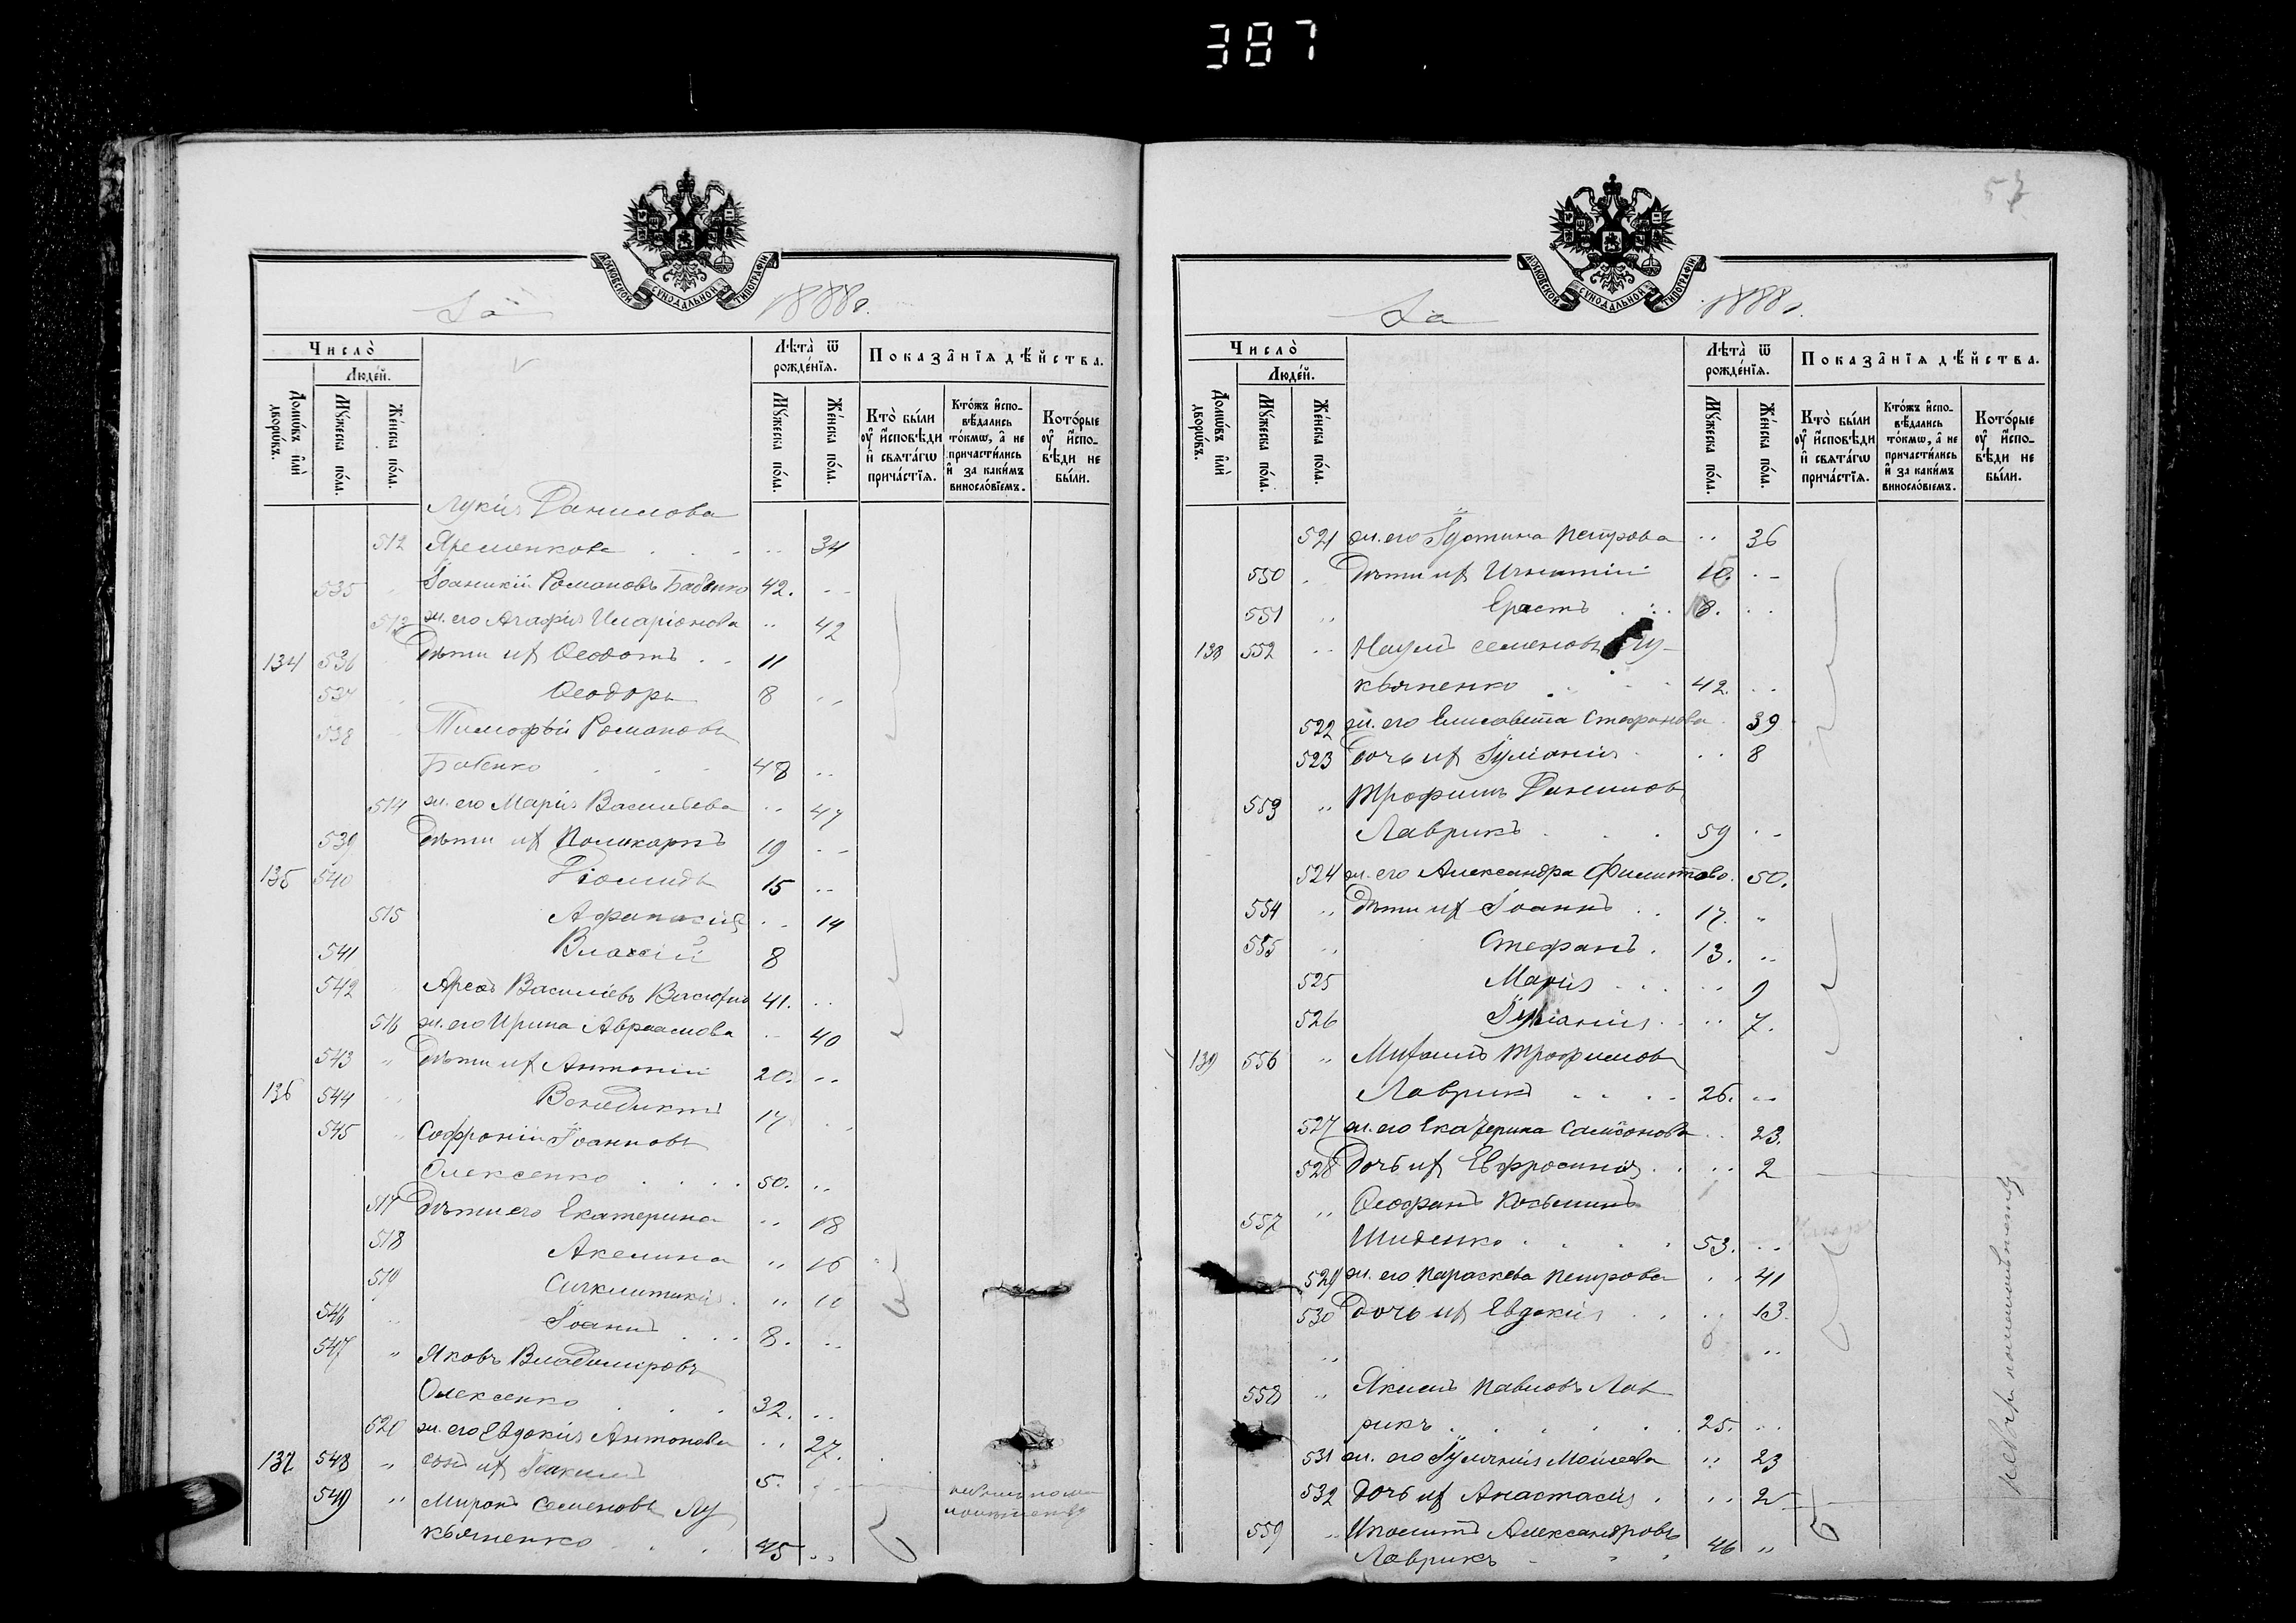 387
МОСКОВСКОЙ СѴНОДАЛЬНОЙ ТИПОГРАФІИ
За 1888 г.
Число̀
Людей.
Домѡвъ и҆лѝ дворѡвъ.
Мꙋжеска пола.
Женска пола.
Лѣта̀ ѿ рожденїѧ.
Мꙋжеска пола.
Женска пола.
Показанїѧ дѣйства.
Кто̀ были оу҆ и҆сповѣди и҆ свѧтагѡ причастїѧ.
Ктожъ и҆сповѣдались токмѡ, а҆ не причастились и҆ за какимъ винословїемъ.
Которые оу҆ и҆сповѣди не были.
Лукія Данилова
512 Яременкова 34
535 Іоанникій Романовъ Бабенко 42.
513 ж. его Агафія Иларіонова 42
134 536 Дѣти ихъ Ѳеодотъ 11
537 Ѳеодоръ 8
538 Тимофѣй Романовъ
Бабенко 48
514 ж. его Марія Васильева 47
539 Дѣти ихъ Поликарпъ 19
135 540 Діомидъ 15
515 Афанасія 14
541 Власій 8
542 Василіевъ 41.
516 ж. его Ирина Авраамова 40
543 Дѣти ихъ Антоній 20.
136 544 Венедиктъ 17
545 Софроній Іоанновъ
Олексенко 50.
517 Дѣти его Екатерина 18
518 Акелина 16
519 Сигклитикія 10
546 Іоаннъ 8.
547 Яковъ Владимировъ
Олексенко 32.
520 ж. его Евдокія Антонова 27.
137 548 сынъ ихъ Іоакимъ 5.
549 Миронъ Семеновъ Лу
кьяненко 45
57
МОСКОВСКОЙ СѴНОДАЛЬНОЙ ТИПОГРАФІИ
За 1888 г.
Число̀
Людей.
Домѡвъ и҆лѝ дворѡвъ.
Мꙋжеска пола.
Женска пола.
Лѣта̀ ѿ рожденїѧ.
Мꙋжеска пола.
Женска пола.
Показанїѧ дѣйства.
Кто̀ были оу҆ и҆сповѣди и҆ свѧтагѡ причастїѧ.
Ктожъ и҆сповѣдались токмѡ, а҆ не причастились и҆ за какимъ винословїемъ.
Которые оу҆ и҆сповѣди не были.
521 ж. его Іустина Петрова 36
550 Дѣти ихъ Игнатій 10.
551 Ерастъ 8.
138 552 Наумъ Семеновъ Лу-
кьяненко 42.
522 ж. его Елисавета Стефанова 39
523 Дочь ихъ Іуліанія 8
553 Трофимъ Даниловъ
Лаврикъ 59
524 ж. его Александра 50.
554 Дѣти ихъ Іоаннъ 17.
555 Стефанъ 13.
525 Марія 9
526 Іуліанія 7.
139 556 Михаилъ Трофимовъ
Лаврикъ 26.
527 ж. его Екатерина Самсонова 23.
528 Дочь ихъ Евфросинія 2
557 Ѳеофанъ Косьминъ
Шиденко 53.
529 ж. его Параскева Петрова 41
530 Дочь ихъ Евдокія 13.
558 Якимъ Павловъ Лав
рикъ 25.
531 ж. его Іуліанія Моисеева 23
532 Дочь ихъ Анастасія 2
559 Иполитъ Александровъ
Лаврикъ 46